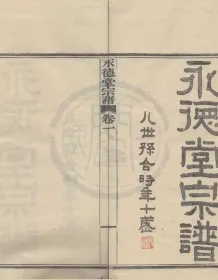 永德堂宗譜
八世孫合時年十叢
永德堂宗譜
卷一
一